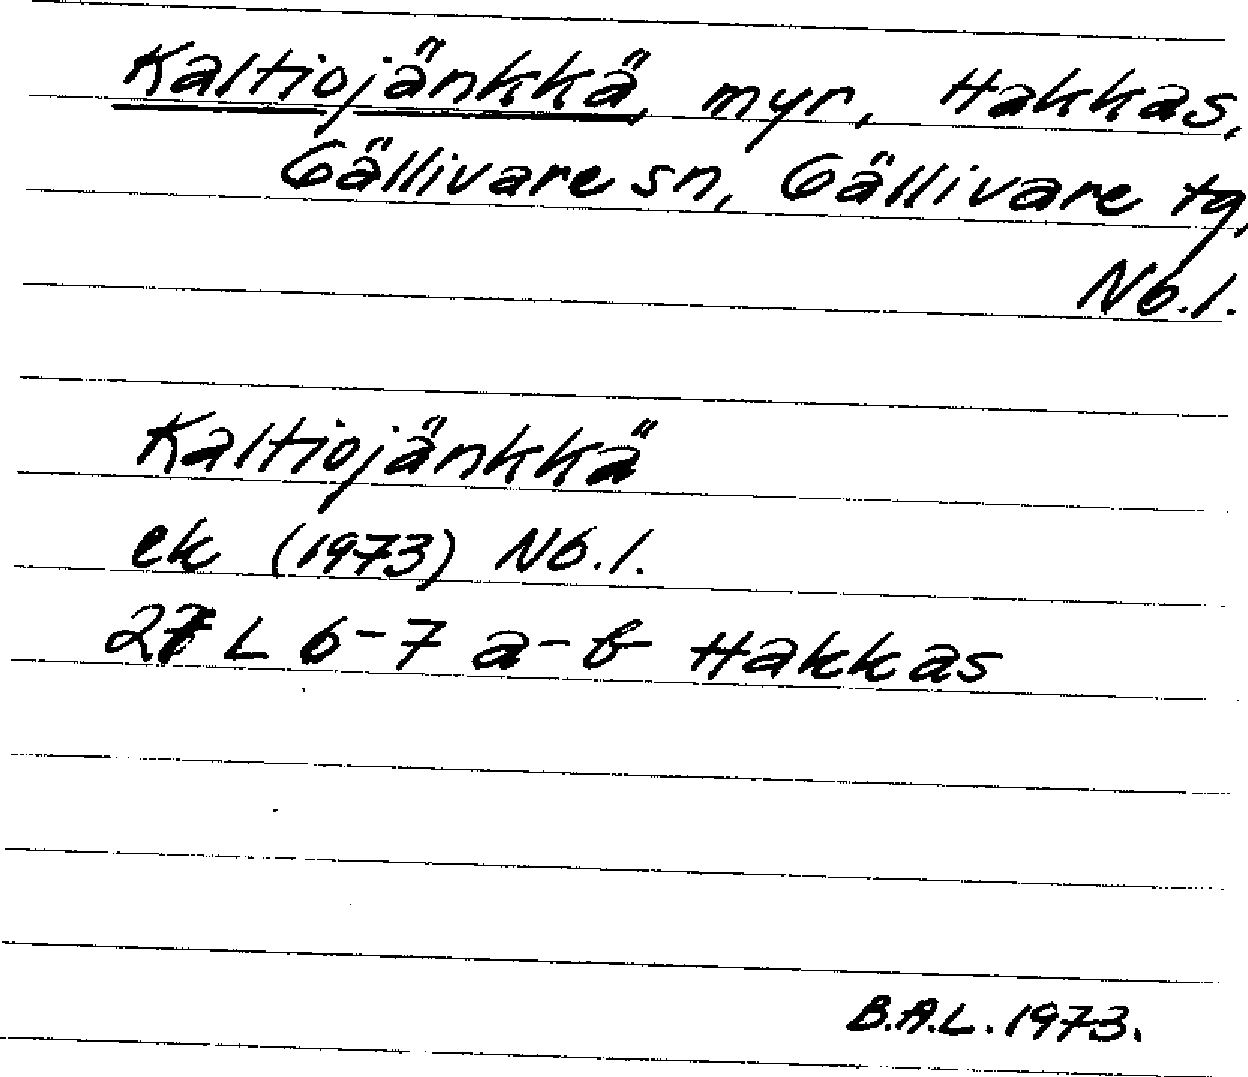 Kaltiojänkkä, myr, Hakkas,
Gällivare sn, Gällivare tg,
Nb.l.
Kaltiojänkkä
ek (1973) Nb.l.
L 6-7 a-b Hakkas
B.A.L. 1973.